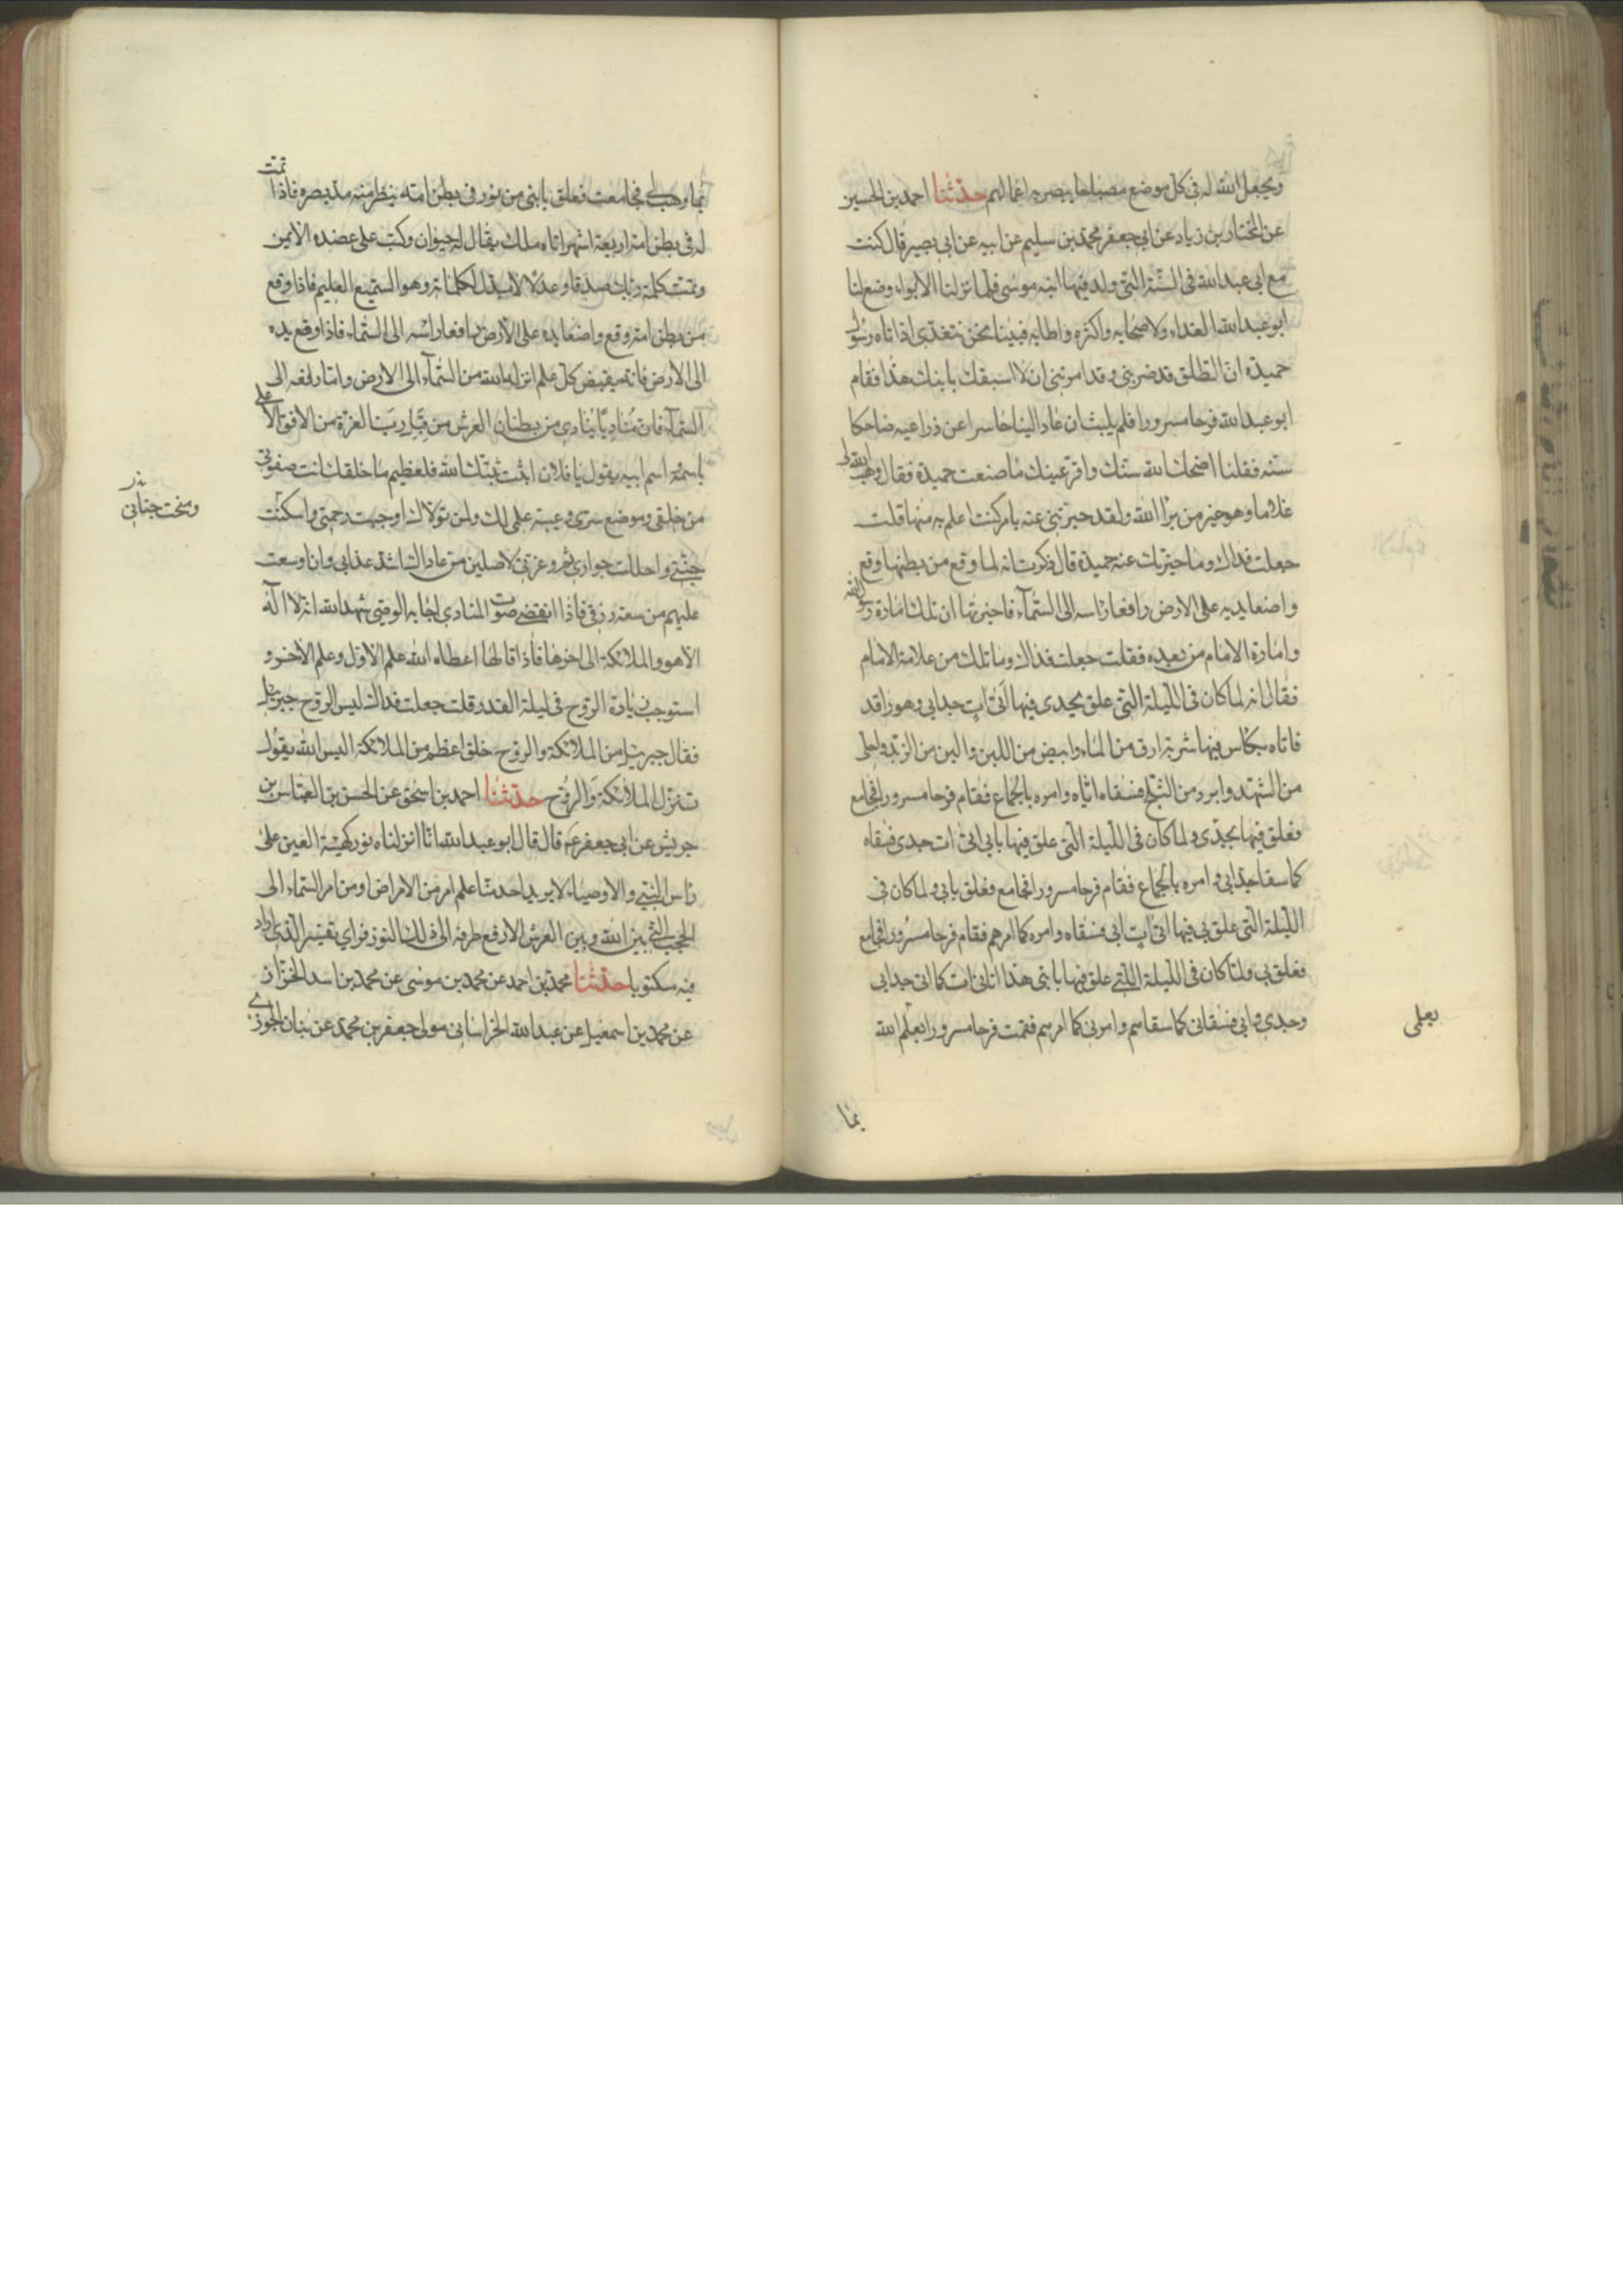 ويجعل الله له في كل موضع مصباحا يبصر به اعمالهم حدثنا احمد بن الحسين
عن المختار بن زياد عن ابي جعفر محمد بن سليم عن ابيه عن ابي بصير قال كنت
مع ابي عبد الله في السنة التي ولد فيها ابنه موسى فلما نزلنا الابواء وضع لنا
ابو عبد الله الغداء ولاصحابه واكثره واطابه فبينا نحن نتغدى اذ اتاه رسول
حميدة ان الطلق قد ضربني وقد امرتني ان لا اسبقك بابنك هذا فقام
ابو عبد الله فرحا مسرورا فلم يلبث ان عاد الينا حاسرا عن ذراعيه ضاحكا
سنه فقلنا اضحك الله سنك واقر عينك ما صنعت حميدة فقال وهب الله لي
غلاما وهو خير من برأ الله ولقد خبرتني عنه بامر كنت اعلم به منها قلت
جعلت فداك وما خبرتك عنه حميدة قال ذكرت انه لما وقع من بطنها وقع
واضعا يديه على الارض رافعا راسه الى السماء فاخبرتها ان تلك امارة رسول الله
وامارة الامام من بعده فقلت جعلت فداك وما تلك من علامة الامام
فقال انه لما كان في الليلة التي علق بجدي فيها اتى ات جد ابي وهو راقد
فاتاه بكاس فيها شربة ارق من الماء وابيض من اللبن والين من الزبد واحلى
من الشهد وابرد من الثلج فسقاه اياه وامره بالجماع فقام فرحا مسرورا فجامع
فعلق فيها بجدي ولما كان في الليلة التي علق فيها بابي اتى ات جدي فسقاه
كما سقا جد ابي وامره بالجماع فقام فرحا مسرورا فجامع فعلق بابي ولما كان في
الليلة التي علق بي فيها اتى ات ابي فسقاه وامره كما امرهم فقام فرحا مسرورا فجامع
فعلق بي ولما كان في الليلة التي علق فيها بابني هذا اتاني ات كما اتى جد ابي
وجدي وابي فسقاني كما سقاهم وامرني كما امرهم فقمت فرحا مسرورا بعلم الله
بعلمي
بما
بما وهب لي فجامعت فعلق بابني من نور في بطن امه ينظر منه مد بصره فاذا تمت
له في بطن امه اربعة اشهر اتاه ملك يقال له حيوان وكتب على عضده الايمن
وتمت كلمة ربك صدقا وعدلا لا مبدل لكلماته وهو السميع العليم فاذا وقع
من بطن امه وقع واضعا يده على الارض رافعا راسه الى السماء فاذا وقع يده
الى الارض فانه يقبض كل علم انزله الله من السماء الى الارض واما رافعه الى
السماء فان مناديا ينادي من بطنان العرش من قبل رب العزة من الافق الاعلى
باسمه اسم ابيه يقول يا فلان اثبت ثبتك الله فلعظيم ما خلقك انت صفوتي
من خلقي وموضع سري وعيبة علمي لك ولمن تولاك اوجبت رحمتي واسكنت
ومنحت جناني
جنتي واحللت جواري ثم وعزتي لاصلين من عاداك اشد عذابي وان اوسعت
عليهم من سعة رزقي فاذا انقضى صوت المنادي اجابه الوصي شهد الله انه لا اله
الا هو والملائكة الى اخرها فاذا قالها اعطاه الله علم الاول وعلم الاخر و
استوجب زيادة الروح في ليلة القدر قلت جعلت فداك اليس الروح جبرئيل
فقال جبرئيل من الملائكة والروح خلق اعظم من الملائكة اليس الله يقول
تنزل الملائكة والروح حدثنا احمد بن اسحق عن الحسن بن العباس بن
جريش عن ابي جعفر ع قال قال ابو عبد الله انا انزلناه نور كهيئة العين على
راس النبي والاوصياء لا يريد احد منا علم امر من الامر ارض او من امر السماء الى
الحجب التي بين الله وبين العرش الا رفع طرفه الى ذلك النور فراى تفسير الذي اراد
فيه مكتوبا حدثنا محمد بن احمد عن محمد بن موسى عن محمد بن اسد الخزاز
عن محمد بن اسمعيل عن عبد الله الخراساني مولى جعفر بن محمد عن بنان الجوزي